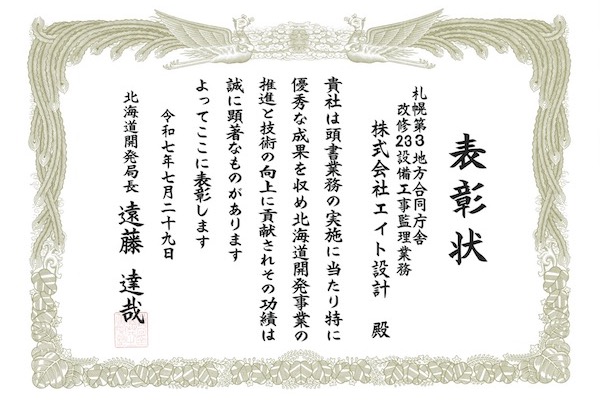 表彰状
札幌第3地方合同庁舎
改修23設備工事監理業務
株式会社エイト設計 殿
貴社は頭書業務の実施に当たり特に
優秀な成果を収め北海道開発事業の
推進と技術の向上に貢献されその功績は
誠に顕著なものがあります
よってここに表彰します
令和七年七月二十九日
北海道開発局長 遠藤達哉